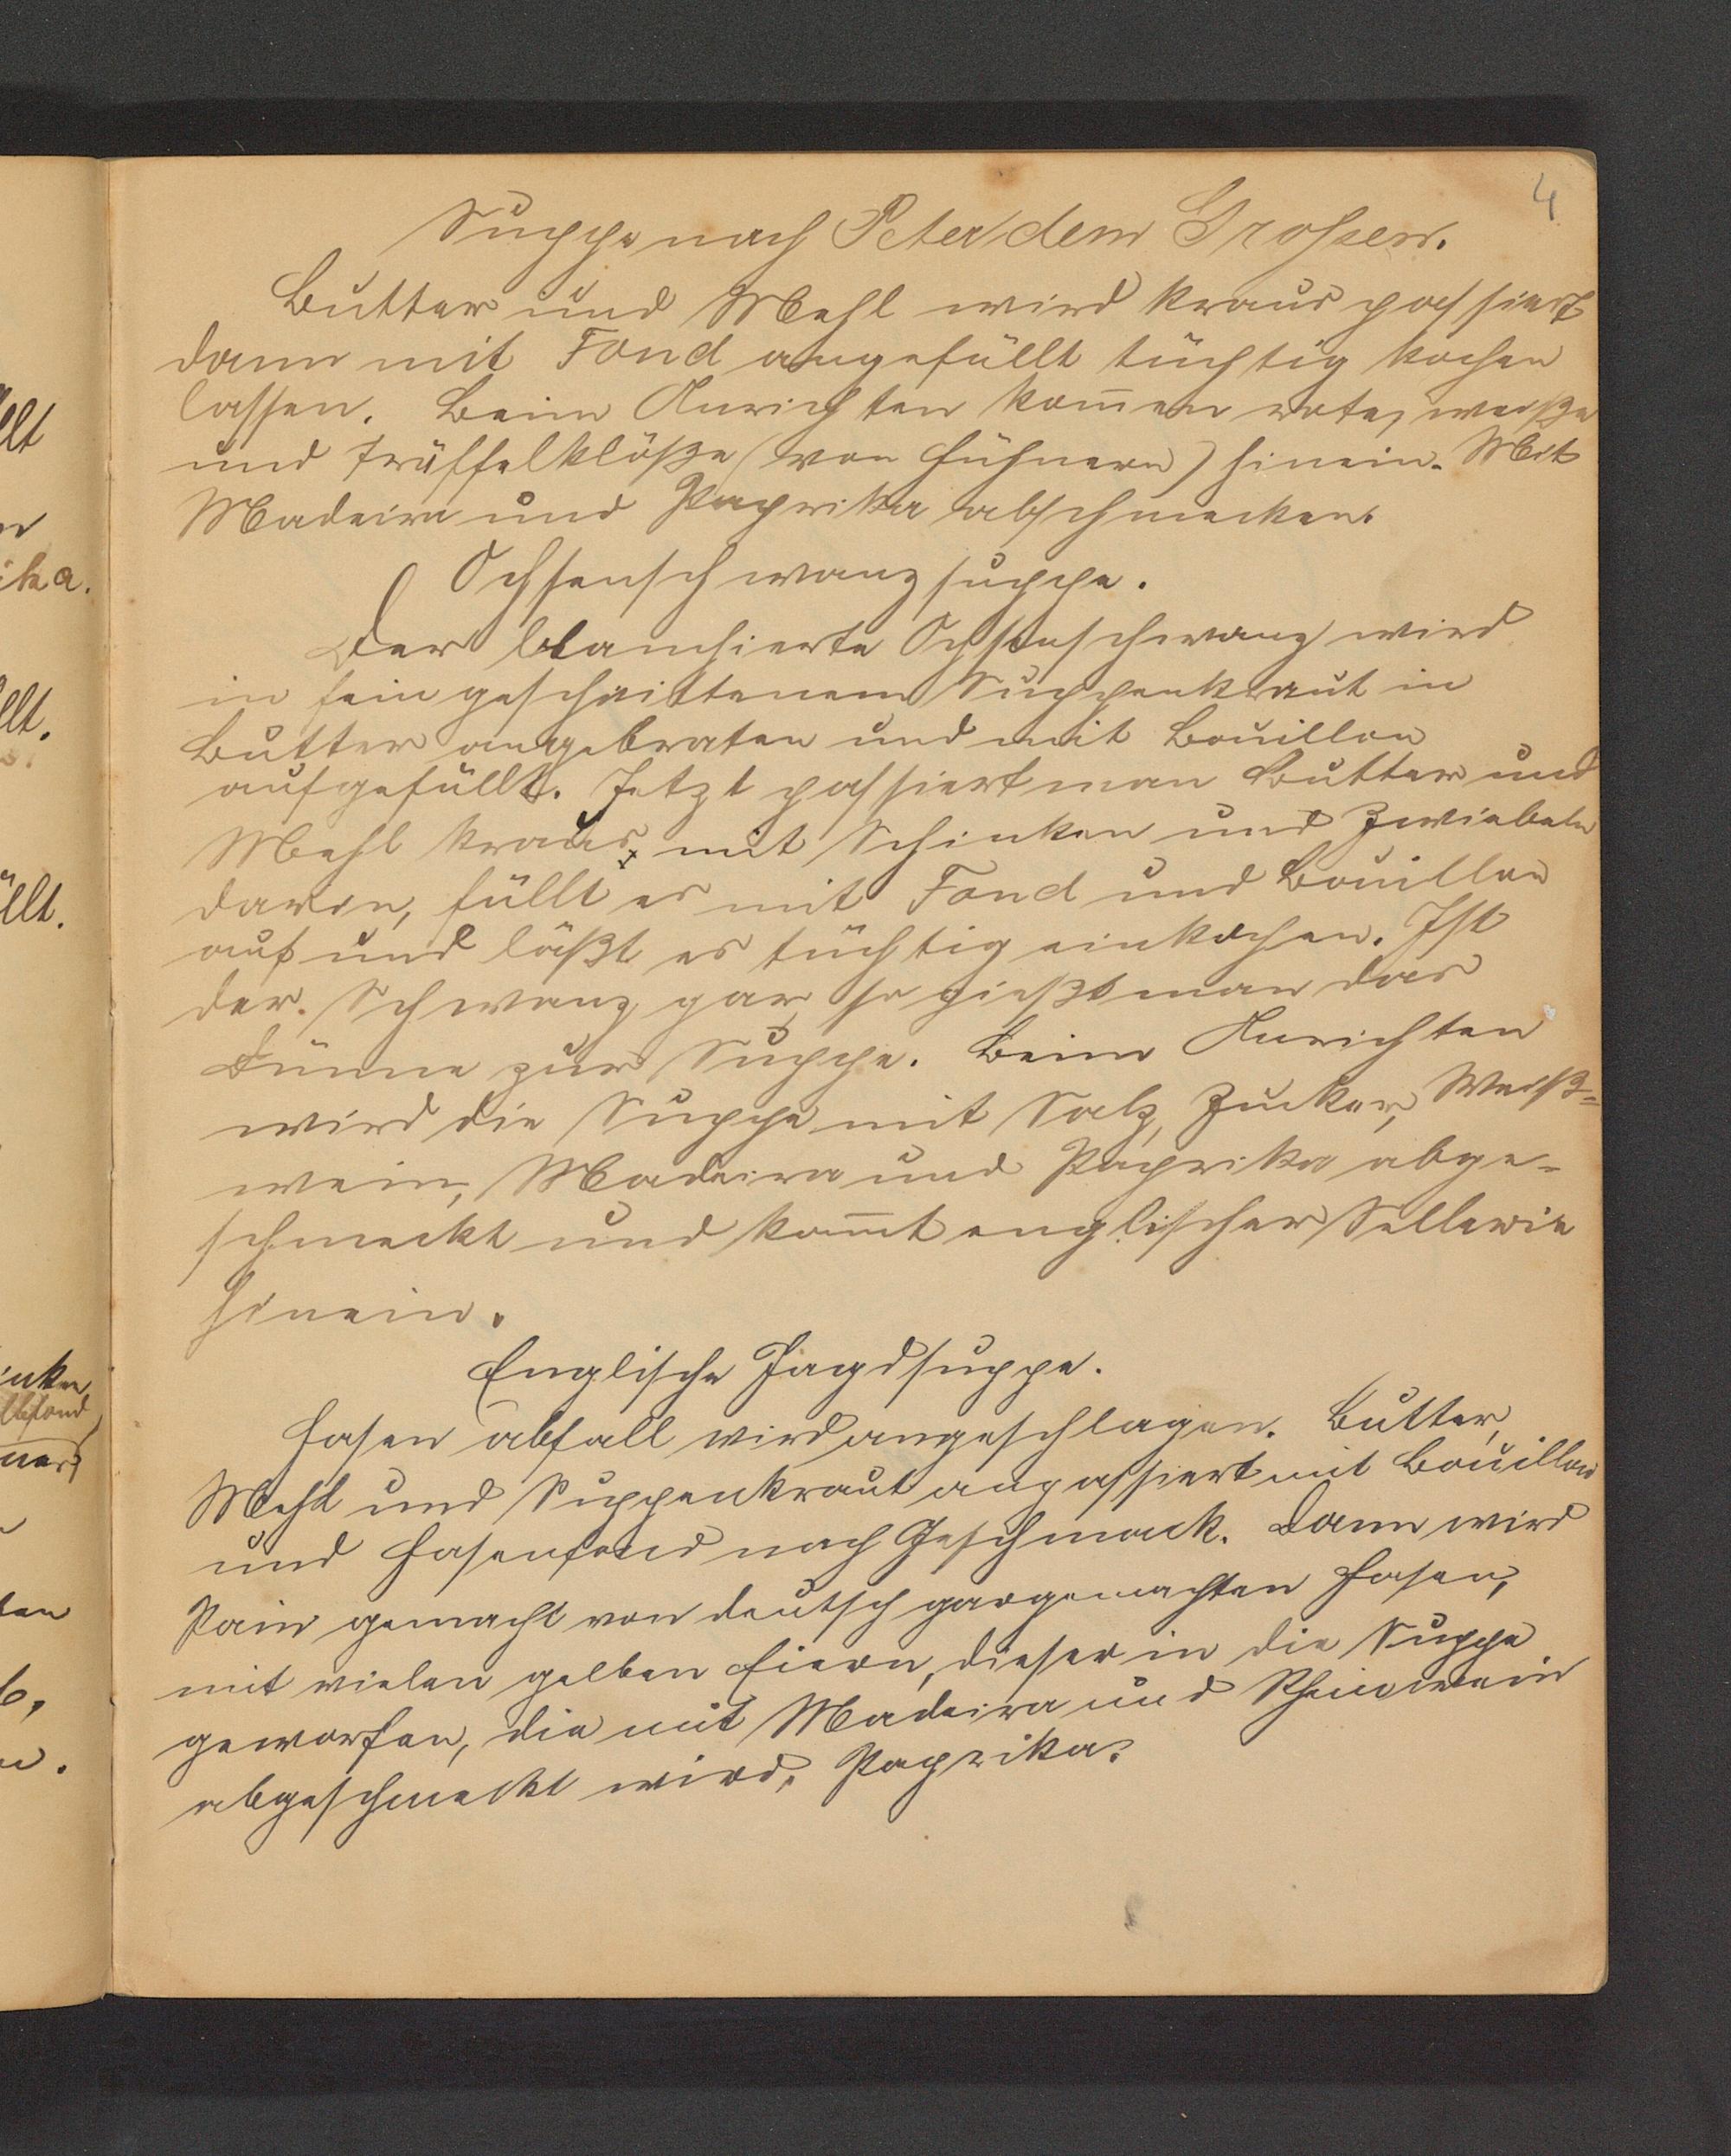 4
Suppe nach Peter dem Großen.
Butter und Mehl wird kraus passiert
dann mit Fond angefüllt tüchtig kochen
lassen. Beim Anrichten kom̅en rote, weiße
und Trüffelklöße (von Hühnern) hinein. Mit
Madeira und Paprika abschmecken.
Ochsenschwanzsuppe.
Der blanchierte Ochsenschwanz wird
in fein geschnittenem Suppenkraut in
Butter angebraten und mit Bouillon
aufgefüllt. Jetzt passiert man Butter und
Mehl kraus, mit Schinken und Zwiebeln
darin, füllt es mit Fond und Bouillon
auf und läßt es tüchtig einkochen. Ist
der Schwanz gar so gießt man das
Dünne zur Suppe. Beim Anrichten
wird die Suppe mit Salz, Zucker, Weiß-
wein, Madeira und Paprika abge-
schmeckt und kom̅t englischer Sellerie
hinein.
Englische Jagdsuppe.
Hasen abfall wird angeschlagen. Butter,
Mehl und Suppenkraut anpassiert mit Bouillon
und Hasenfond nach Geschmack. Dann wird
Pain gemacht von deutsch gargemachten Hasen,
mit vielen gelben Eiern, dieser in die Suppe
geworfen, die mit Madeira und Rheinwein
abgeschmeckt wird, Paprika.
llt
ika.
llt.
üllt.
inken,
ten